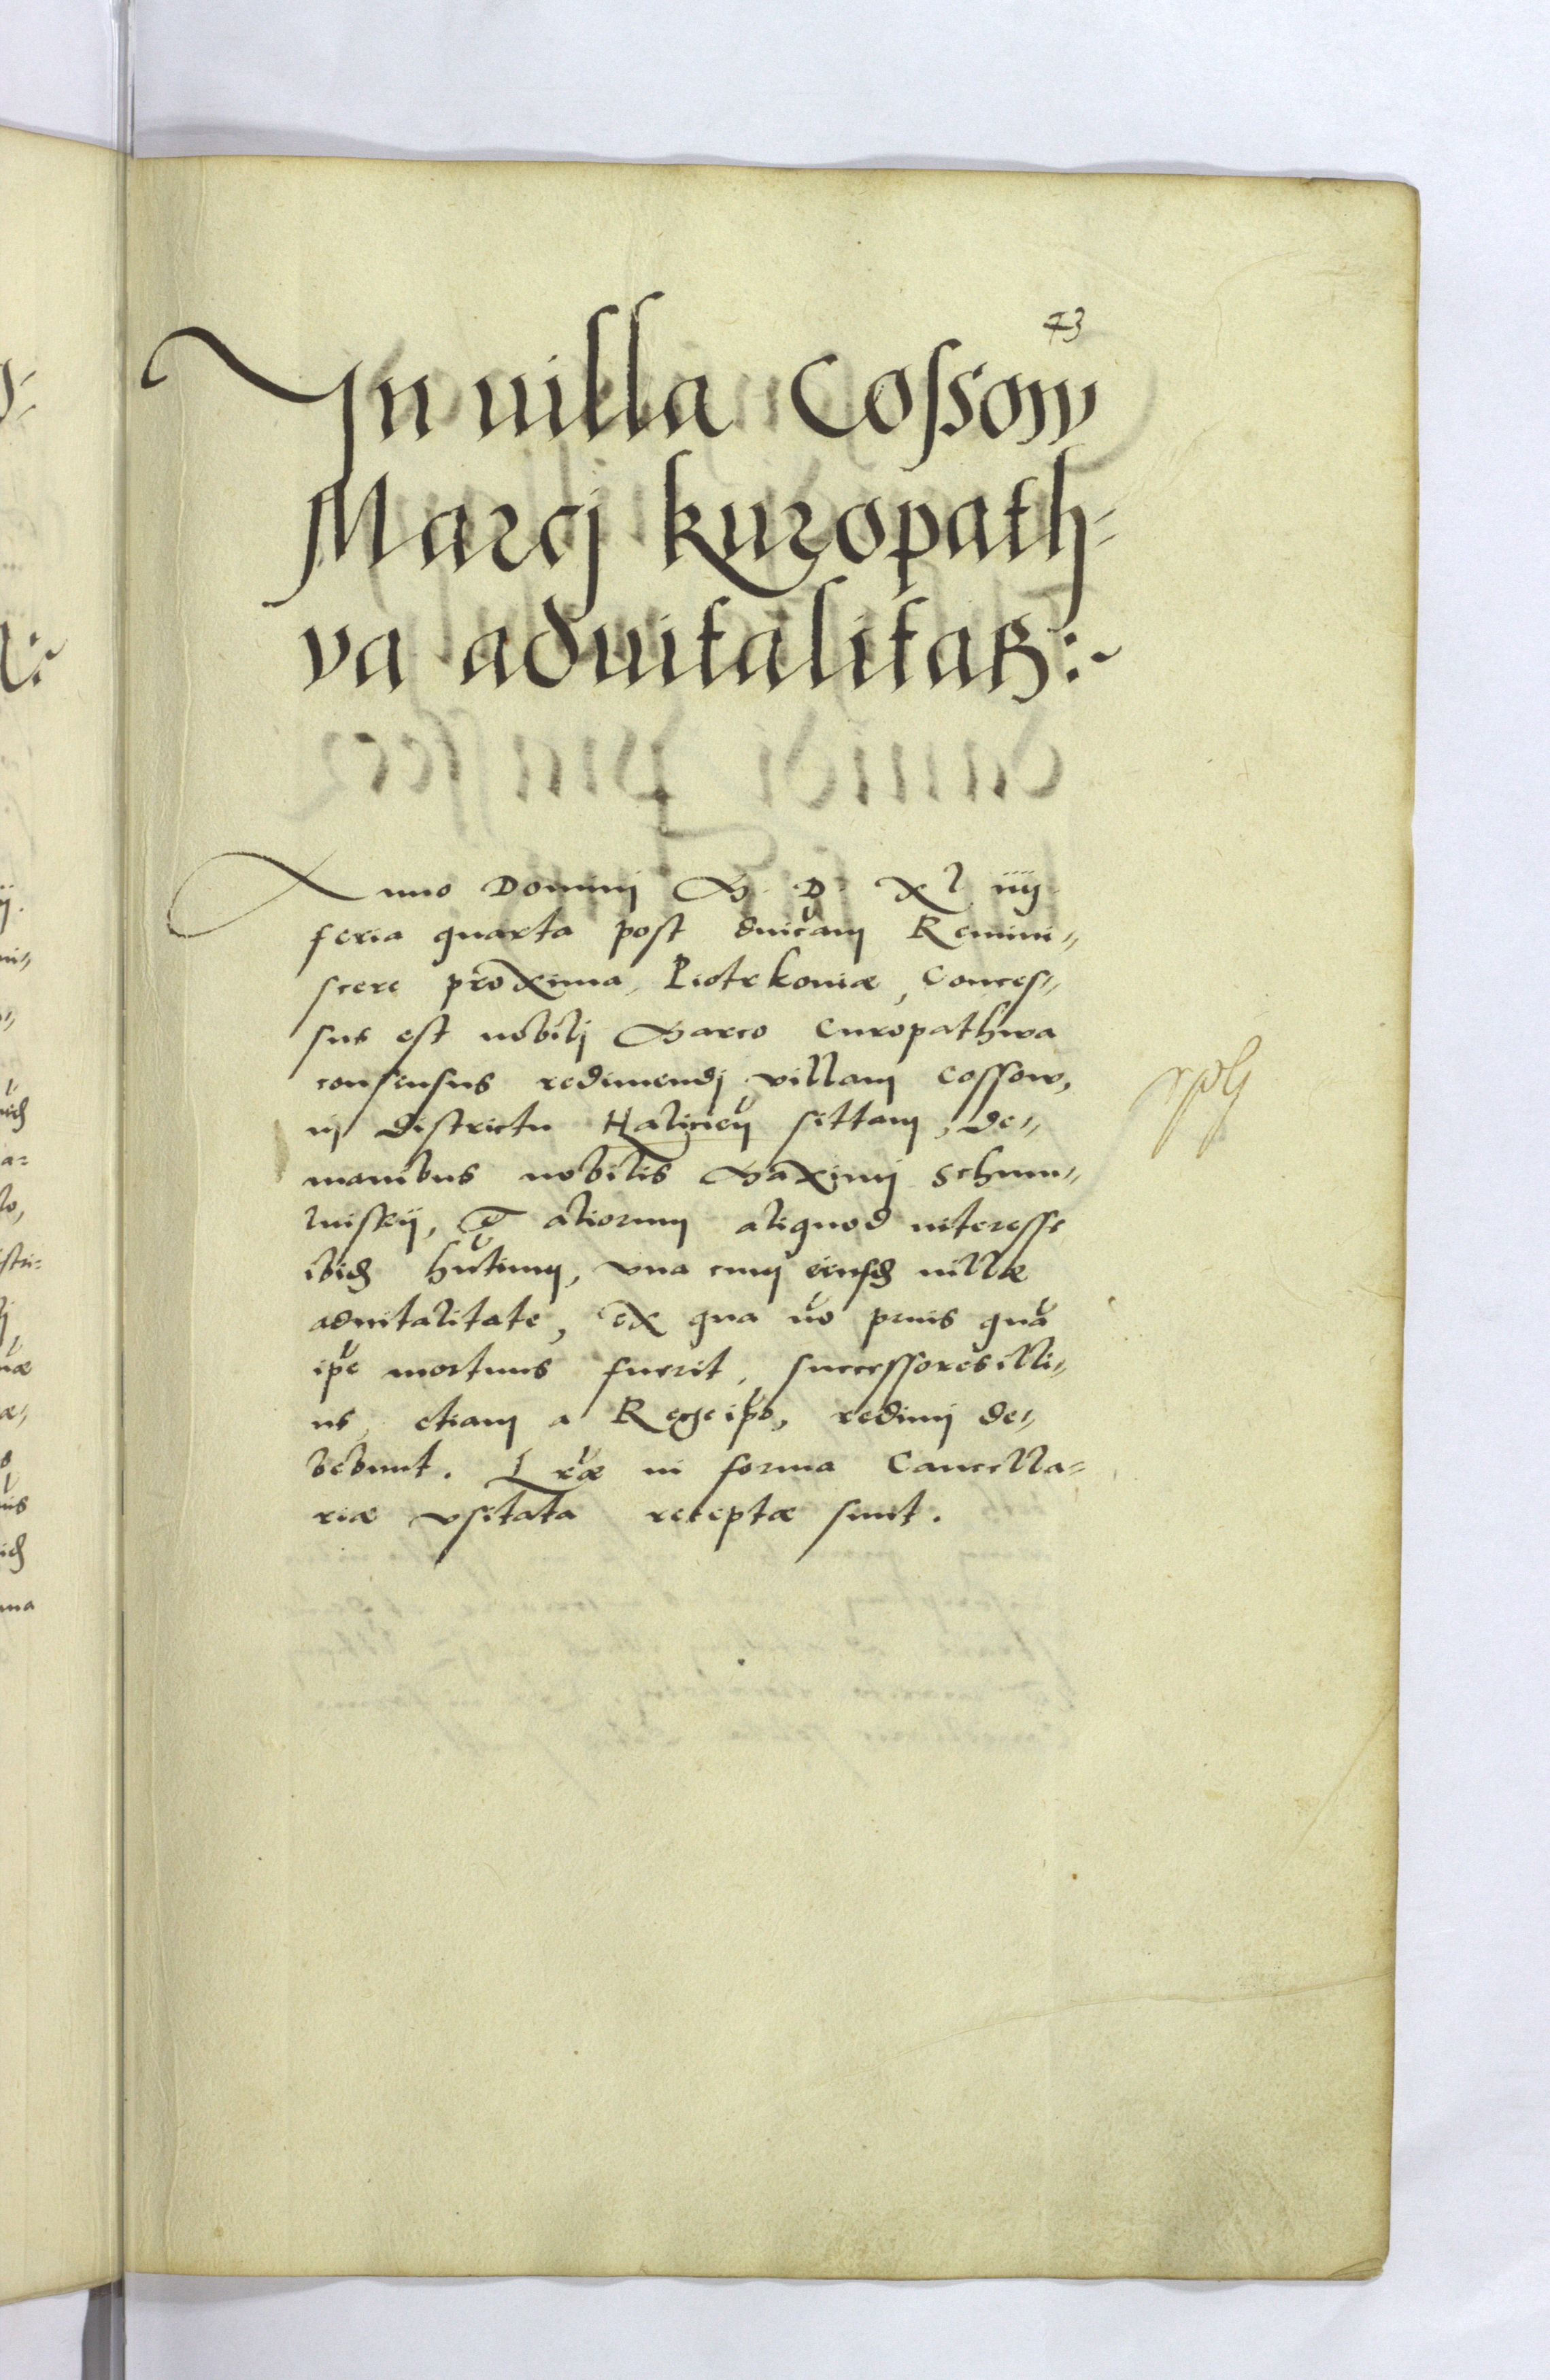 73
In uilla Cossow
Marcj Kuropath-
va aduitalitas:~
Anno Dominj M. D. Xl iiij
feria quarta post dnicam Remini„
scere proxima, Piotrkoviæ, conces„
sus est nobilj Marco Curopathwa
consensus redimendj villam Cossow,
in districtu Halicieñ sittam, de„
manibus nobilis Maximj Schum„
luiskij, et aliorum aliquod interesse
ibid hntium, vna cum eiusd uillæ
aduitalitate, ex qua vo prius qua
ipe mortuus fuerit, successores illi„
us, etiam a Rege ipo, redimj de„
bebunt. Lræ in forma Cancella=
riæ vsitata receptæ sunt.